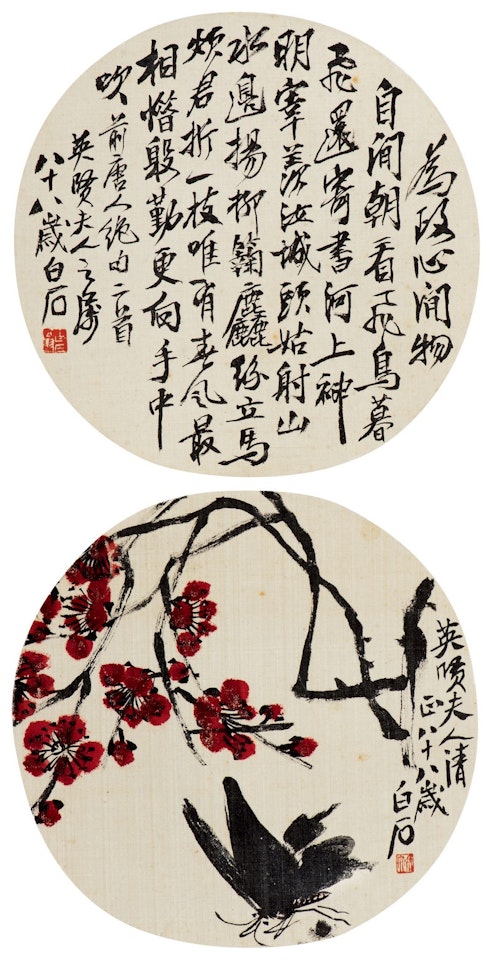 為政心閒物
自閒朝看飛鳥暮
飛還寄書河上神
明宰羨汝誠頭姑射山
水邊楊柳麴塵絲立馬
煩君折一枝唯有春風最
相惜殷勤更向手中
吹 前唐人絕句二首
英賢夫人之屬
八十八歲白石
英賢夫人清
正八十八歲
白石